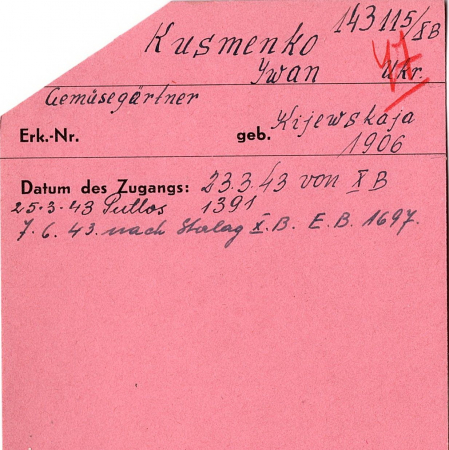 143115/XB
Kusmenko
Ywan Ukr.
Gemüsegärtner
Erk.-Nr. geb. Kijewskaja
1906
Datum des Zugangs: 23.3.43 von XB
25.3.43 Putlos 1391
7.6.43. nach Stalag X.B. E.B. 1697.